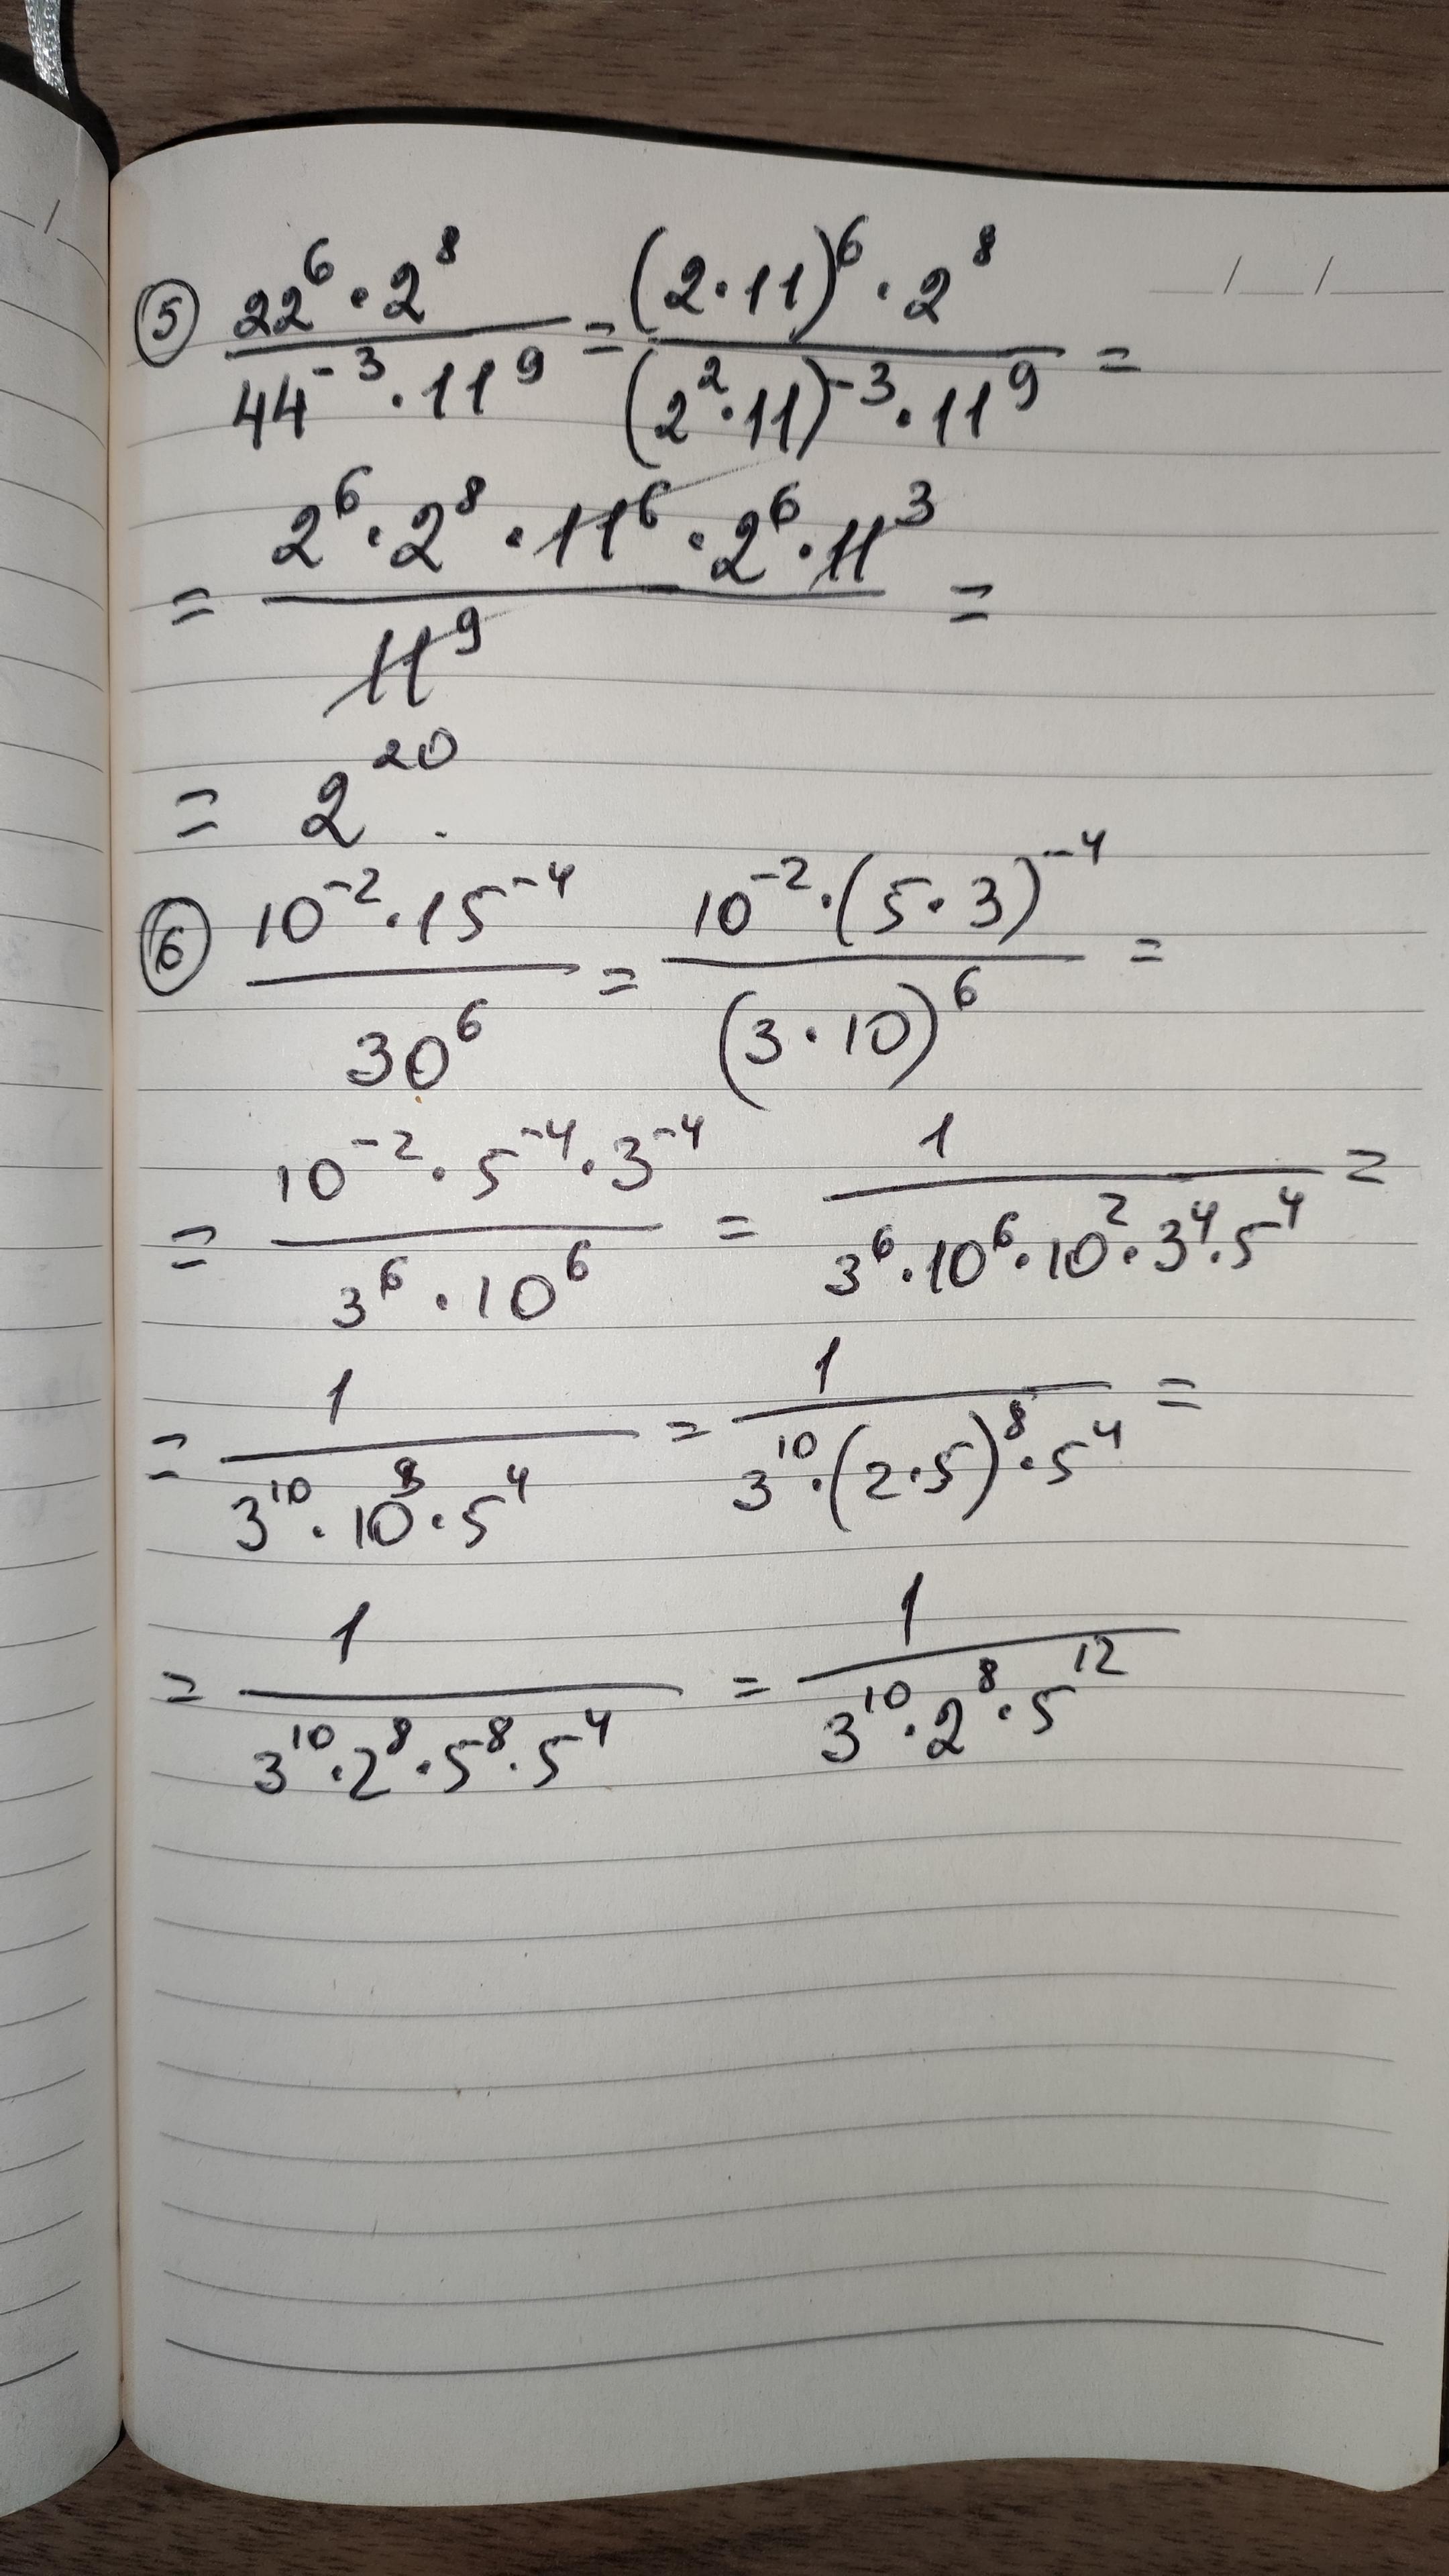 __/__/__
⑤ 22^6 · 2^8 / 44^-3 · 11^9 = (2·11)^6 · 2^8 / (2^2·11)^-3 · 11^9 =
= 2^6 · 2^8 · 11^6 · 2^6 · 11^3 / 11^9 =
= 2^20 .
⑥ 10^-2 · 15^-4 / 30^6 = 10^-2 · (5·3)^-4 / (3·10)^6 =
= 10^-2 · 5^-4 · 3^-4 / 3^6 · 10^6 = 1 / 3^6 · 10^6 · 10^2 · 3^4 · 5^4 =
= 1 / 3^10 · 10^8 · 5^4 = 1 / 3^10 · (2·5)^8 · 5^4 =
= 1 / 3^10 · 2^8 · 5^8 · 5^4 = 1 / 3^10 · 2^8 · 5^12